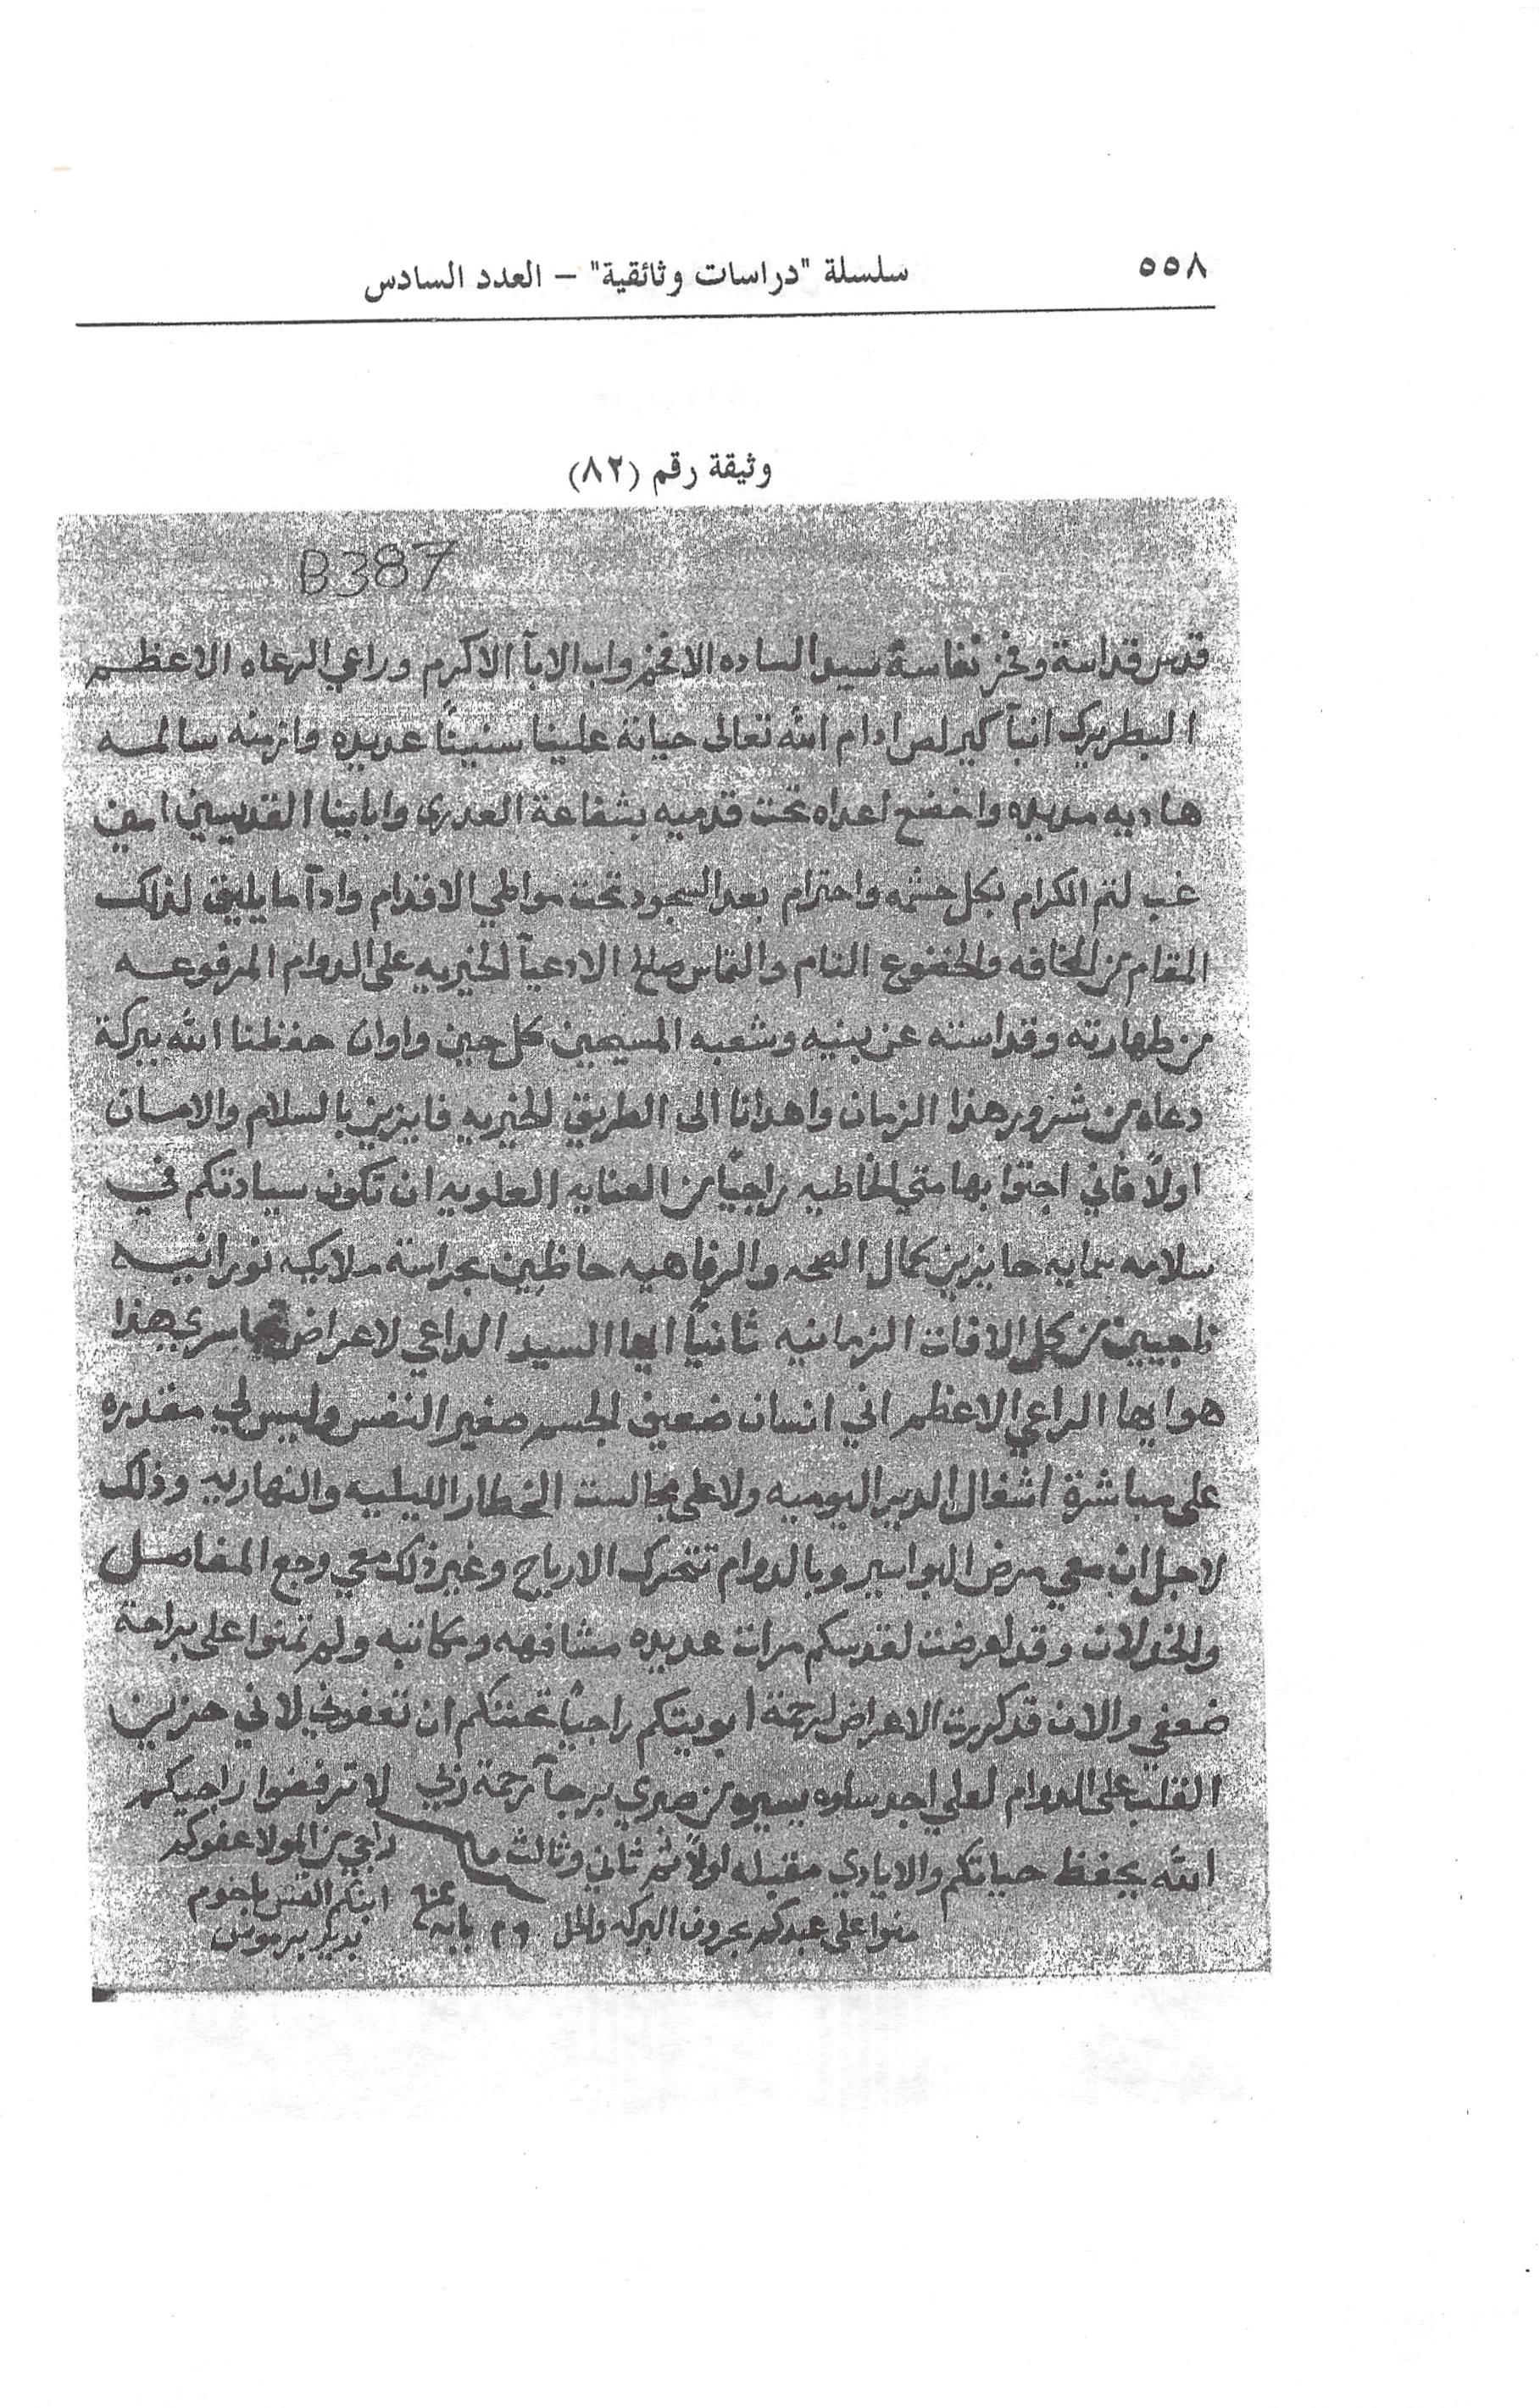 ٥٥٨
سلسلة "دراسات وثائقية" – العدد السادس
وثيقة رقم (٨٢)
B387
قدس قداسة وفخر نفاسة سيد الساده الافخم واب الابآ الاكرم وراعي الرعاه الاعظم
البطريرك انبآ كيرلص ادام الله تعالى حياته علينا سنينًا عديده وازمنه سالمه
هاديه مديده واخضع اعداه تحت قدميه بشفاعة العدرى واباينا القديسين امين
غب لتم الكرام بكل حشمه واحترام بعد السجود تحت مواطي الاقدام وادآ ما يليق لذلك
المقام من المخافه والخضوع التام والتماس صالح الادعيآ الخيريه على الدوام المرفوعه
من طهارته وقداسته عن بنيه وشعبه المسيحين كل حين واوان حفظنا الله ببركة
دعاه من شرور هذا الزمان واهدانا الى الطريق الخيريه فايزين بالسلام والامان
اولاً فاني اجتوا بهامتي الخاطيه راجيًا من العنايه العلويه ان تكون سيادتكم في
سلامه سمايه حايزين كمال الصحه والرفاهيه حاظين بحراسة ملايكه نورانيه
ناجيين من كل الافات الزمانيه ثانيًا ايها السيد الداعي لاعراض تجاسري هذا
هو ايها الراعي الاعظم اني انسان ضعيف الجسم صغير النفس وليس لي مقدره
على مباشرة اشغال الدير اليوميه ولا على مجالست الخطار الليليه والنهاريه وذلك
لاجل ان معي مرض البواسير وبالدوام تتحرك الارياح وغير ذلك معي وجع المفاصل
والخدلان وقد اعرضت لقدسكم مرات عديده مشافهه ومكاتبه ولم تمنوا على براحة
ضعفي والان قد كررت الاعراض لرحمة ابويتكم راجيًا تحننكم ان تعفوني لاني حزين
القلب على الدوام لعلي اجد سلوه يسيره من صبري برجآ رحمة زلي لا ترفضوا راجيكم
الله يحفظ حياتكم والايادي مقبله اولاً ثم ثاني وثالث راجي من المولا عفوكم
ابنكم القس باخوم
منوا على عبدكم بحروف البركه والحل ٢٩ بابه بدير برموس